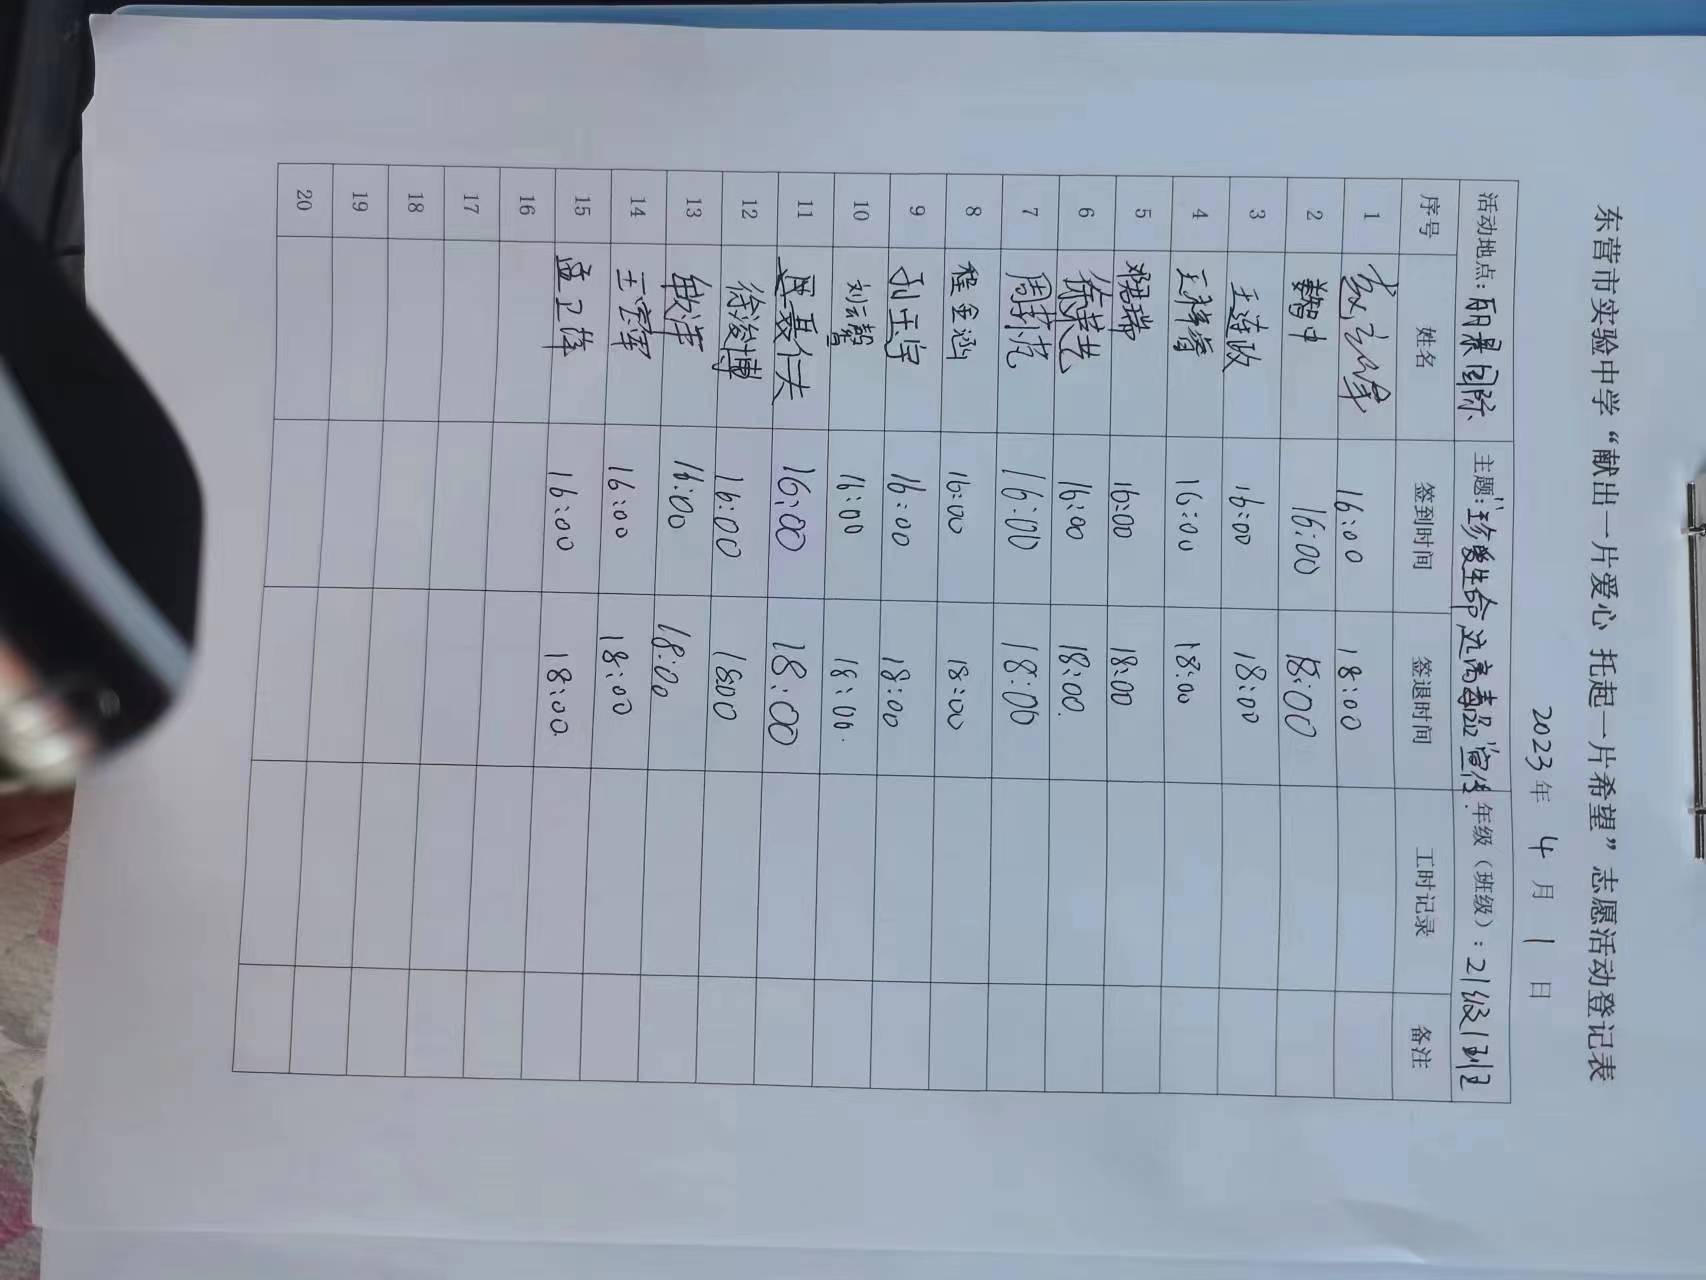 东营市实验中学“献出一片爱心 托起一片希望”志愿活动登记表
2023年 4 月 1 日
活动地点：丽景国际 主题：“珍爱生命 远离毒品”宣传 年级（班级）：21级1班
序号 姓名 签到时间 签退时间 工时记录 备注
1 16:00 18:00
2 智中 16:00 18:00
3 王连政 16:00 18:00
4 王祥睿 16:00 18:00
5 邓君瑞 16:00 18:00
6 徐英芸 16:00 18:00
7 周 16:00 18:00
8 程金涵 16:00 18:00
9 孙王宇 16:00 18:00
10 刘云馨 16:00 18:00
11 16:00 18:00
12 徐浚博 16:00 1800
13 16:00 18:00
14 王 16:00 18:00
15 孟卫锋 16:00 18:00
16
17
18
19
20